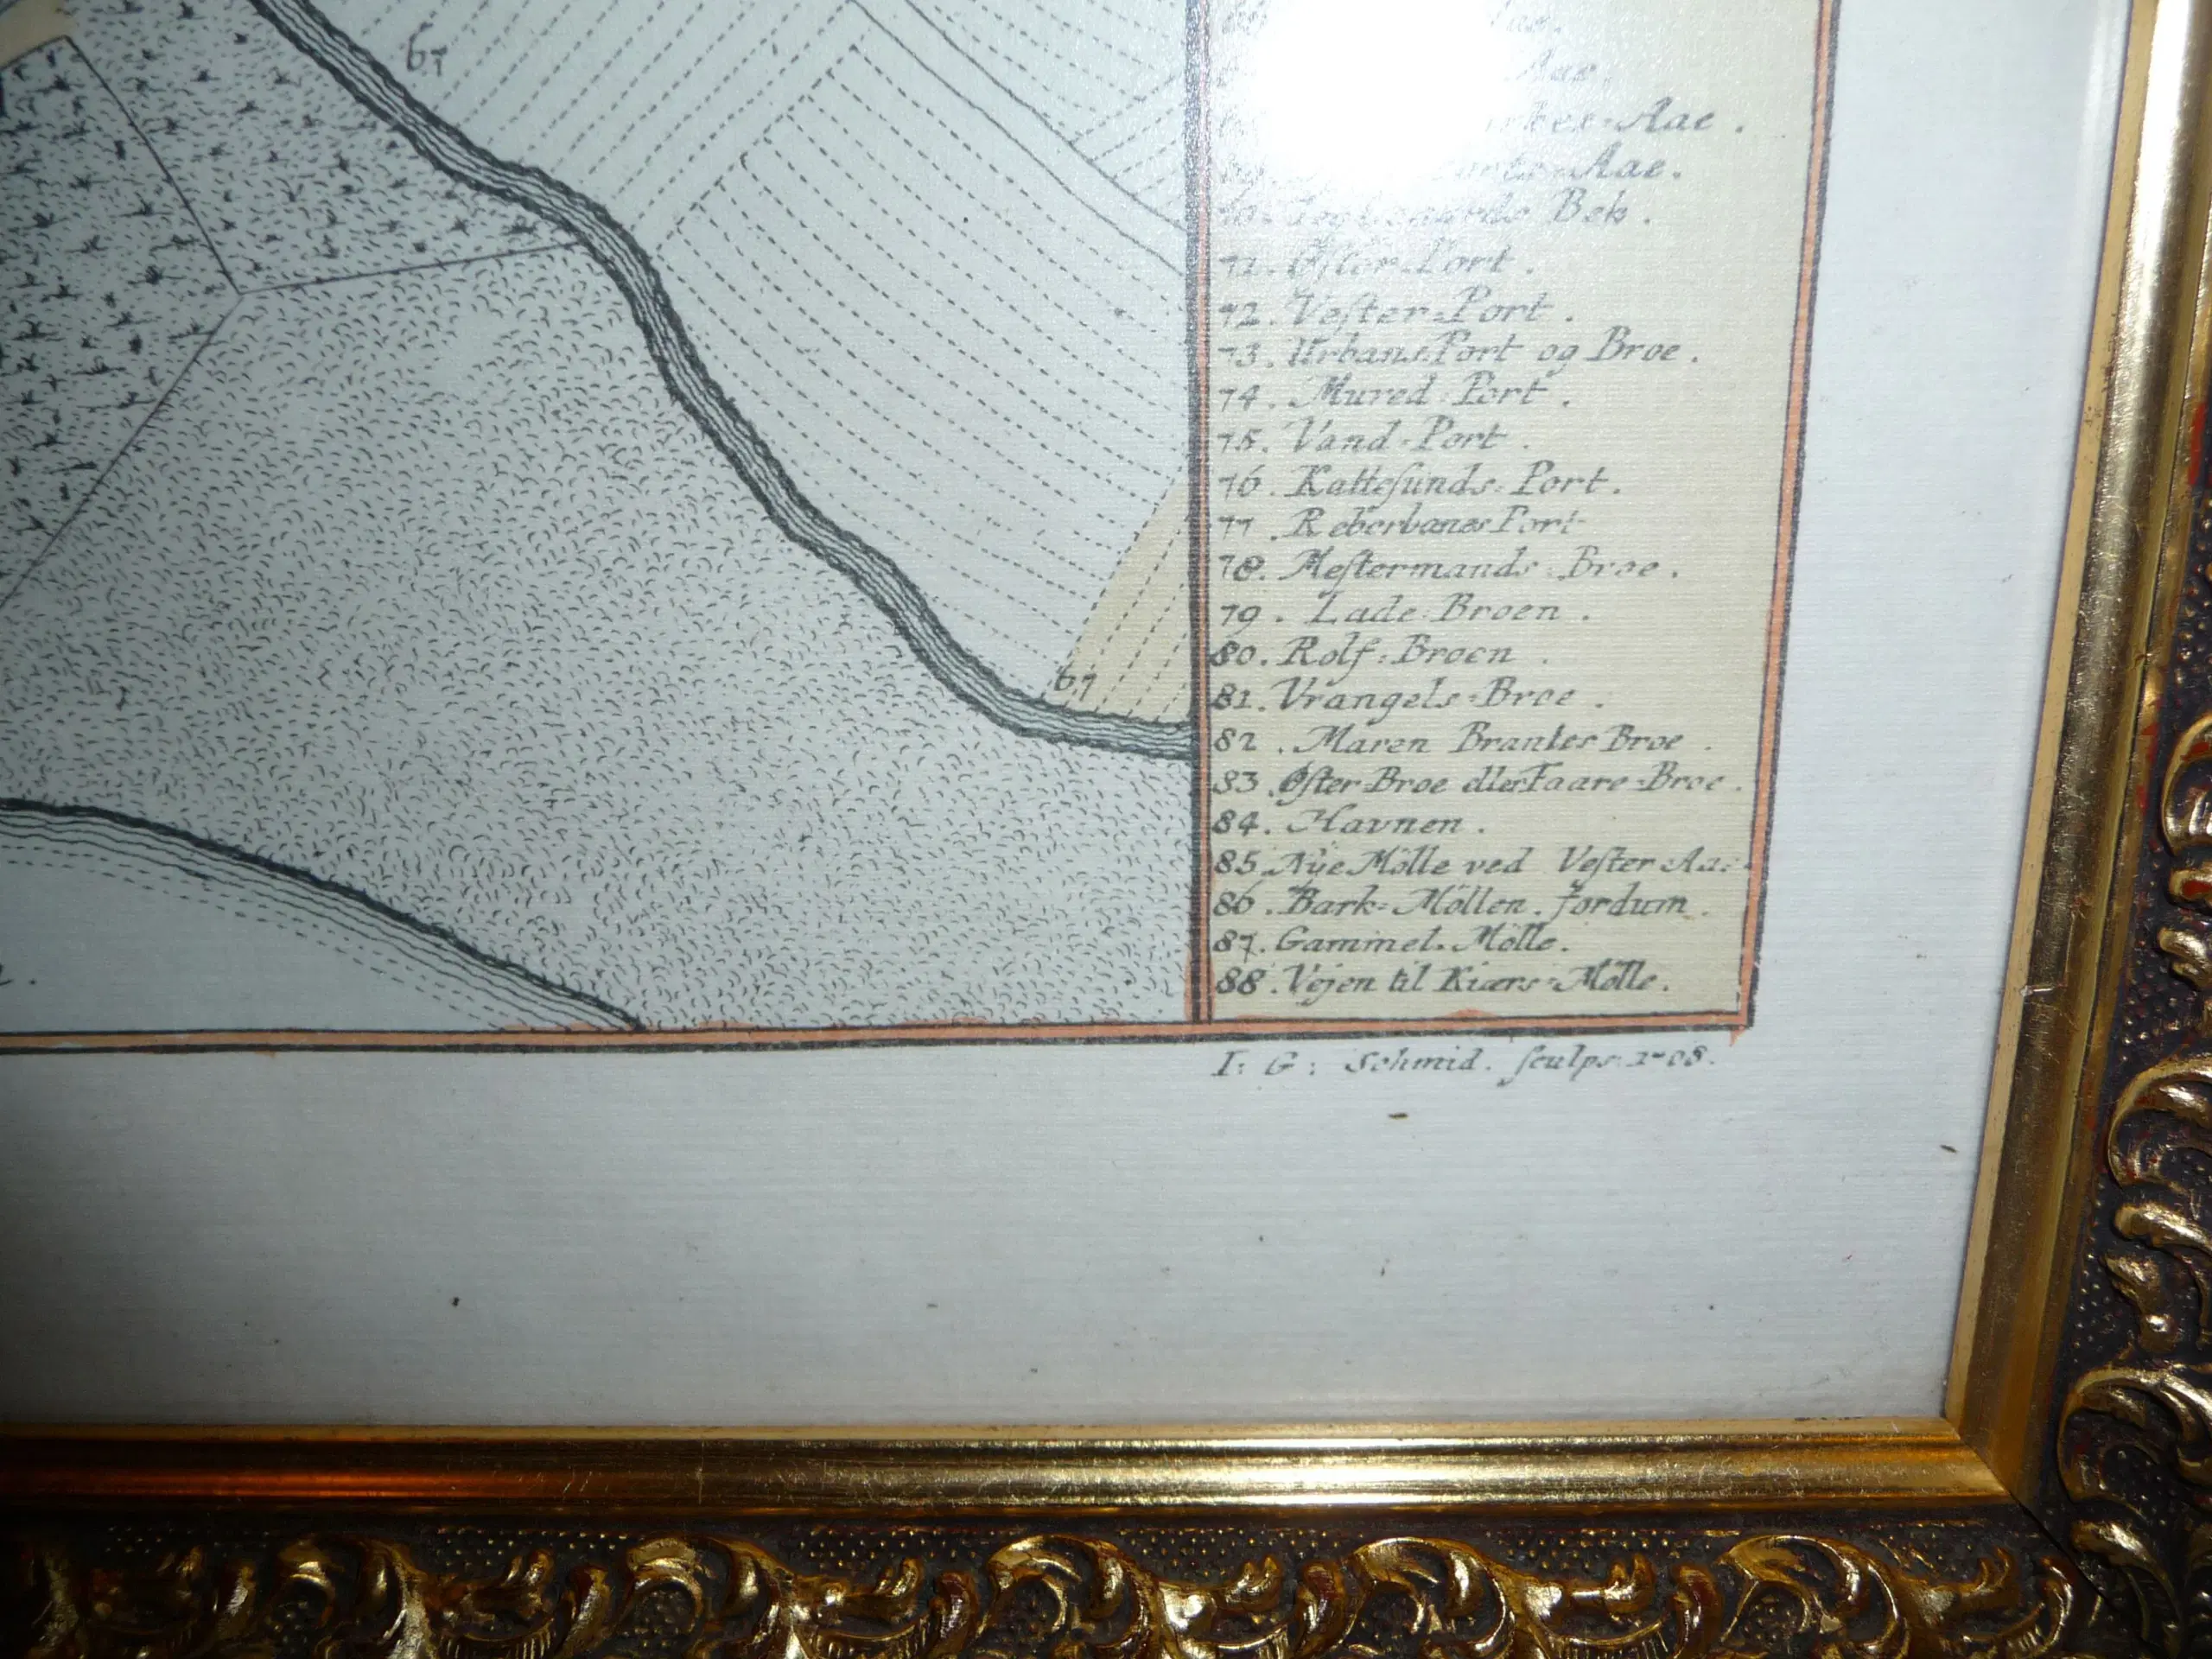 67
Aae.
Aae.
Bek.
71. Øſter-Port.
72. Veſter-Port.
73. Urbans Port og Broe.
74. Mured-Port.
75. Vand-Port.
76. Katteſunds-Port.
77. Reberbanes Port
78. Meſtermands-Broe.
79. Lade-Broen.
80. Rolf-Broen.
81. Vrangels-Broe.
82. Maren Brantes Broe.
83. Øſter-Broe eller Faare-Broe.
84. Havnen.
85. Nÿe Mölle ved Veſter Aae
86. Bark-Möllen. fordum.
87. Gammel-Mölle.
88. Vejen til Kiærs-Mölle.
67
I: G: Schmid. ſculps: